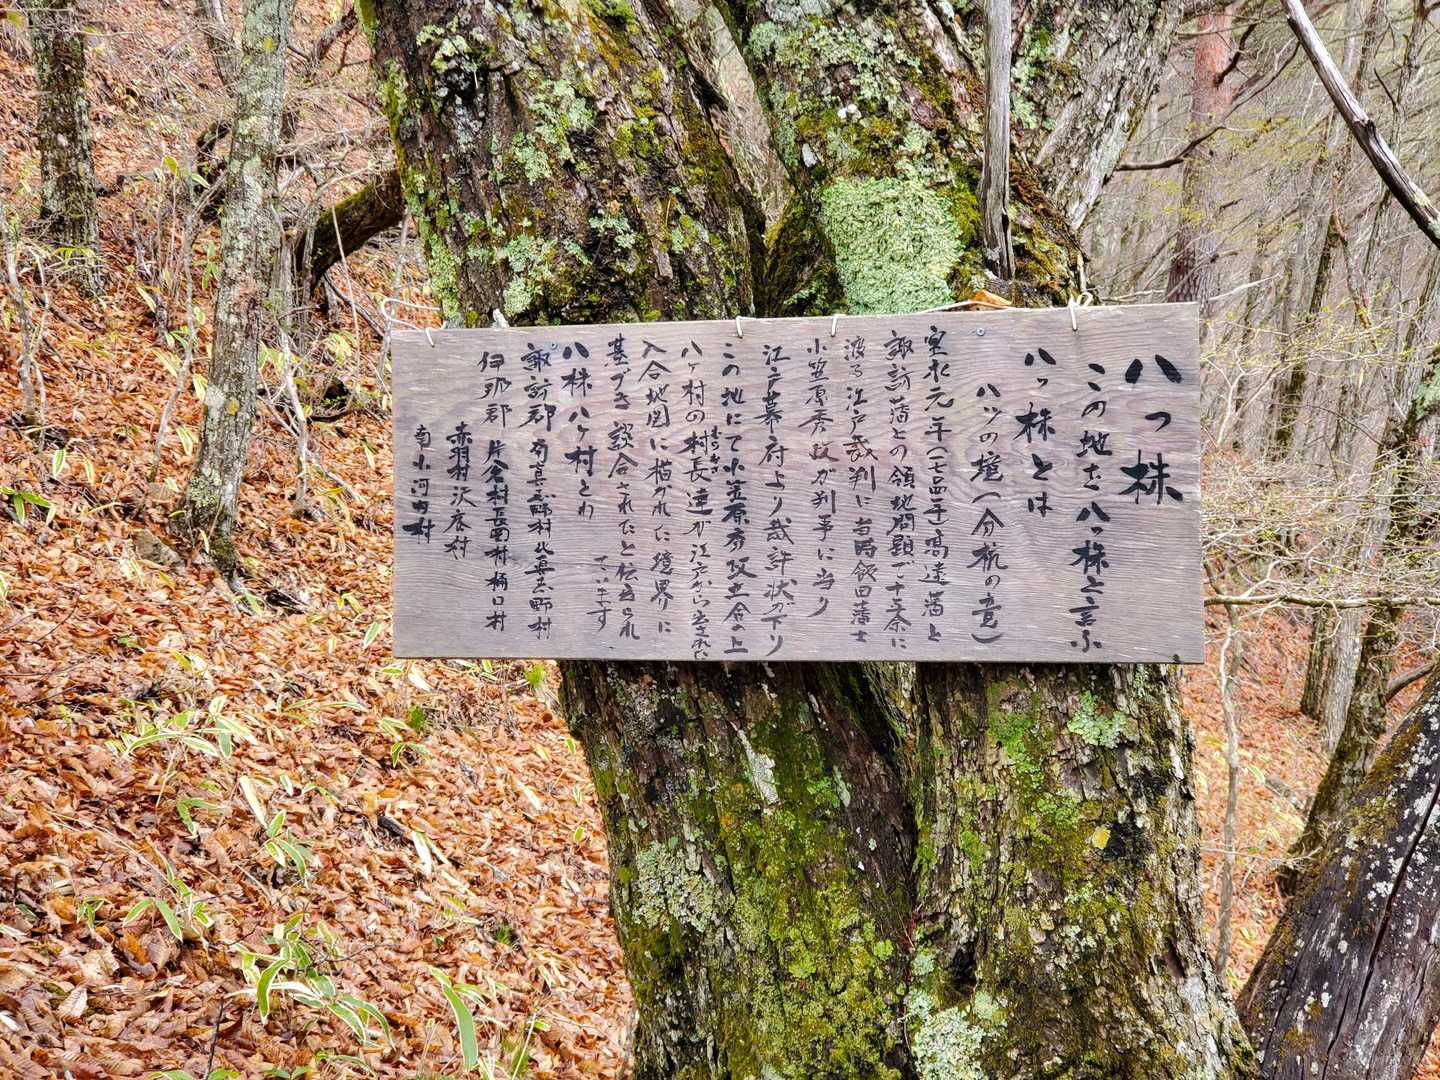 八っ株
この地を八っ株と言ふ
八っ株とは
八ツの境(分杭の意)
宝永元年(七〇四年)高遠藩と
諏訪藩との領地問題で十年余に
渡る江戸裁判に当時飯田藩士
小笠原秀政が判事に当り
江戸幕府より裁許状が下り
この地にて小笠原秀政立会の上
八ヶ村の村長達が江戸から出された
むらおさ
入会地図に描かれた境界りに
基づき談合されたと伝えられ
ています
八株八ヶ村とわ
諏訪郡 南真志野村 北真志野村
伊那郡 片倉村 長岡村 樋口村
赤羽村 沢底村
南小河内村